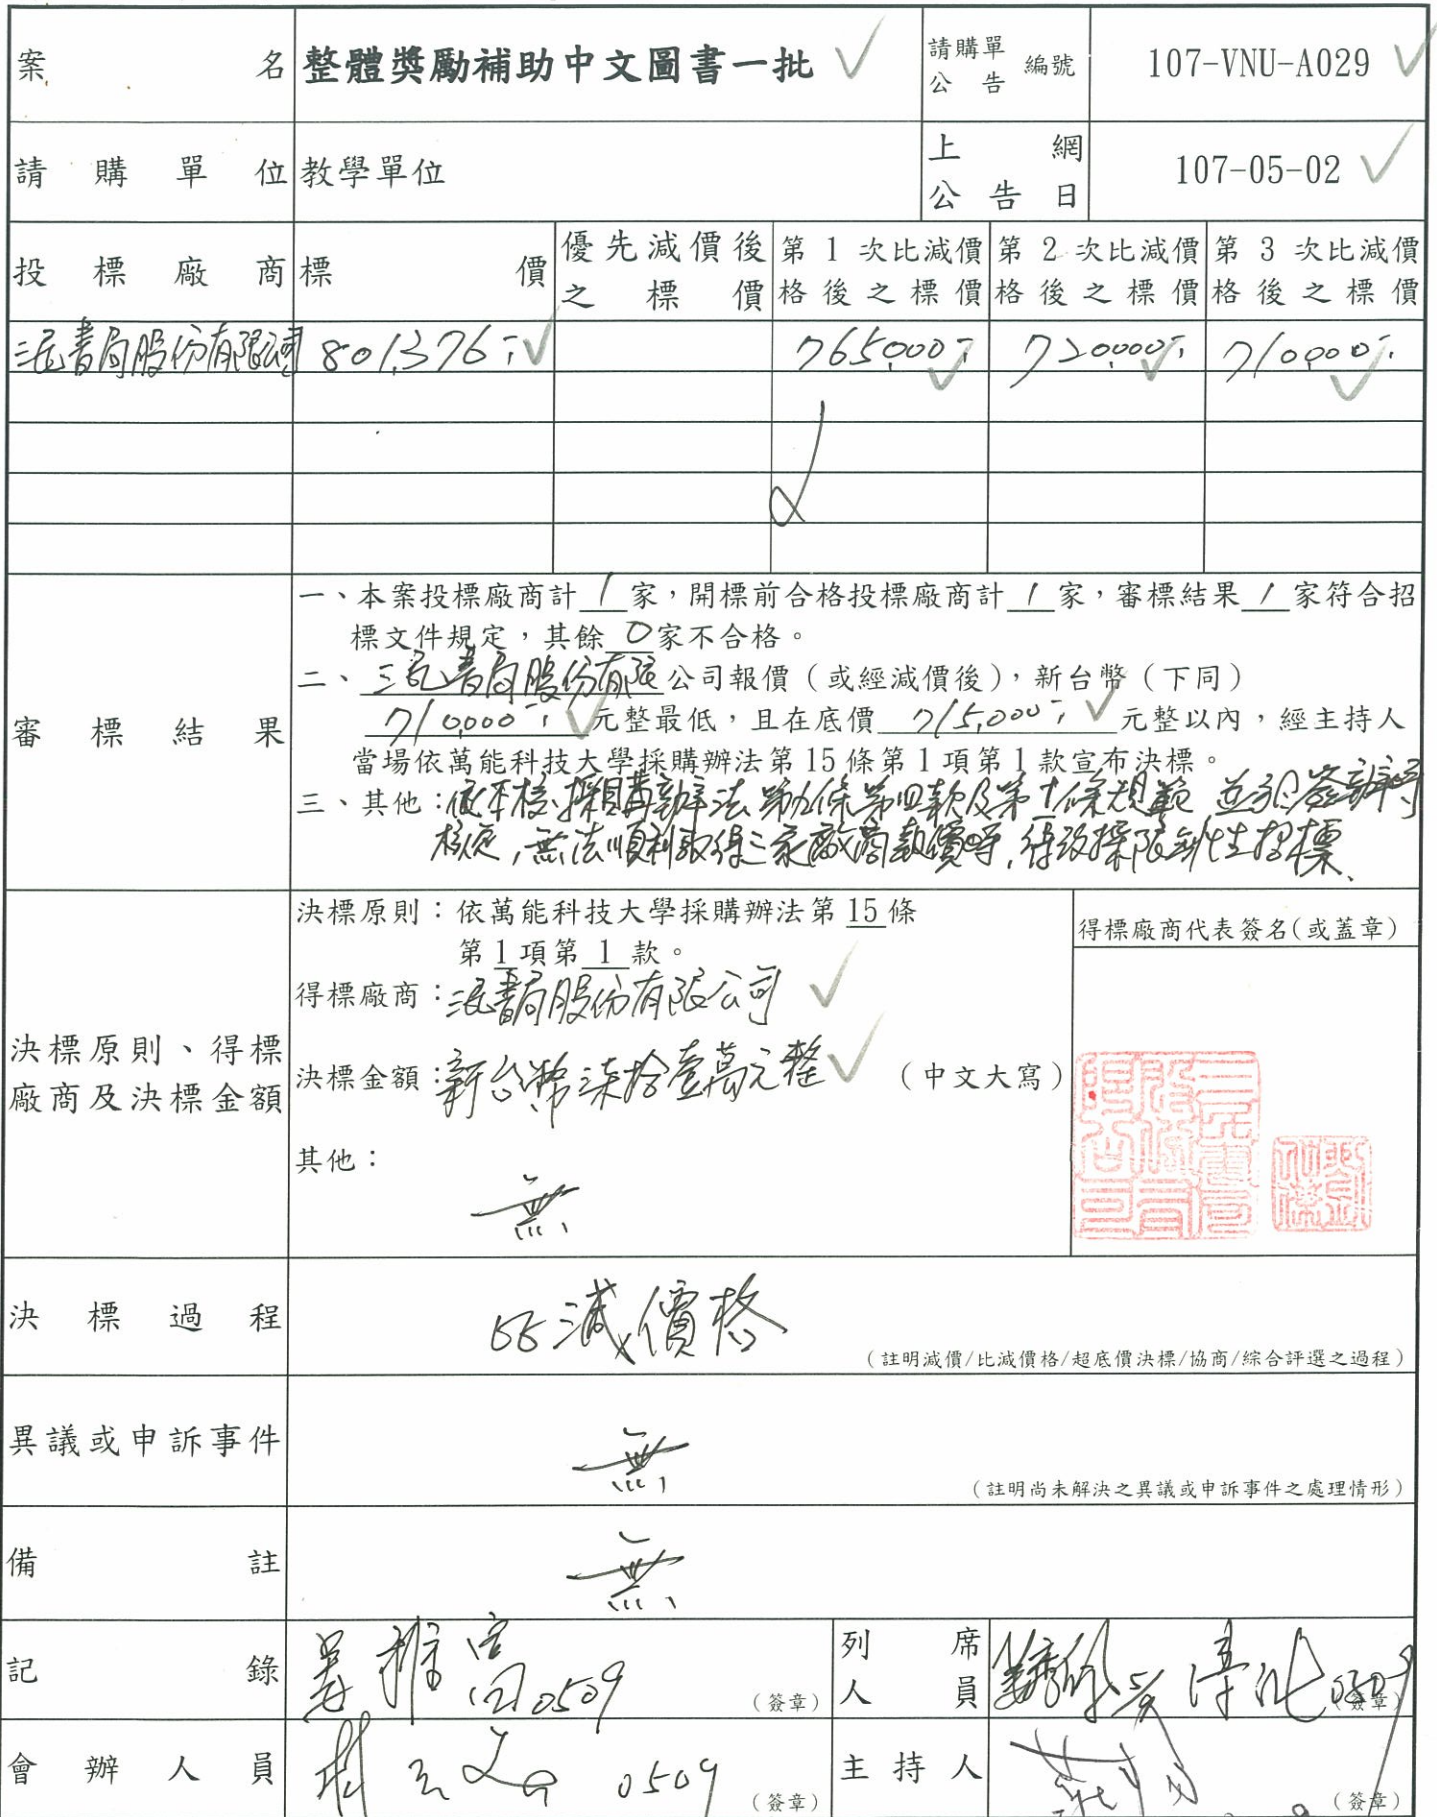 案名 整體獎勵補助中文圖書一批 請購單公告編號 107-VNU-A029
請購單位 教學單位 上網公告日 107-05-02
投標廠商 標價 優先減價後之標價 第1次比減價格後之標價 第2次比減價格後之標價 第3次比減價格後之標價
三民書局股份有限公司 801,376 765,000 720,000 710,000
審標結果
一、本案投標廠商計 1 家，開標前合格投標廠商計 1 家，審標結果 1 家符合招
標文件規定，其餘 0 家不合格。
二、三民書局股份有限公司報價（或經減價後），新台幣（下同）
710,000 元整最低，且在底價 715,000 元整以內，經主持人
當場依萬能科技大學採購辦法第15條第1項第1款宣布決標。
三、其他：依本校採購辦法第九條第四款及第十一條規範
核定，無法順利取得三家廠商報價時，得改採限制性招標、
決標原則、得標廠商及決標金額
決標原則：依萬能科技大學採購辦法第 15 條
第 1 項第 1 款。
得標廠商：三民書局股份有限公司
決標金額：新台幣柒拾壹萬元整（中文大寫）
其他：
無
得標廠商代表簽名(或蓋章)
三民書局股份有限公司
決標過程 比減價格
（註明減價/比減價格/超底價決標/協商/綜合評選之過程）
異議或申訴事件 無
（註明尚未解決之異議或申訴事件之處理情形）
備註 無
記錄 0509 （簽章） 列席人員 （簽章）
會辦人員 0509 （簽章） 主持人 （簽章）